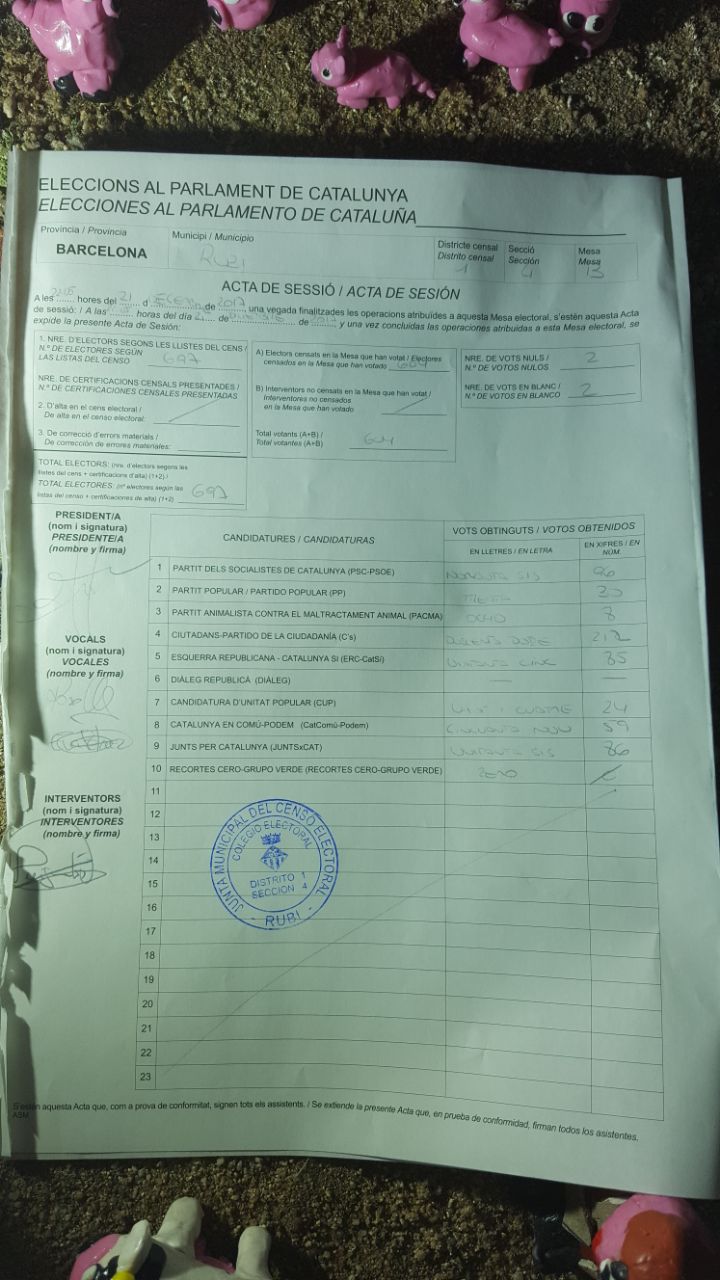 ELECCIONS AL PARLAMENT DE CATALUNYA
ELECCIONES AL PARLAMENTO DE CATALUÑA
Província / Provincia
BARCELONA
Municipi / Municipio
RUBI
Districte censal
Distrito censal
1
Secció
Sección
4
Mesa
Mesa
B
ACTA DE SESSIÓ / ACTA DE SESIÓN
A les ...... hores del 21 d ...... de 2017 una vegada finalitzades les operacions atribuïdes a aquesta Mesa electoral, s'estén aquesta Acta
de sessió: / A las ...... horas del día 21 de ...... de 2017 y una vez concluidas las operaciones atribuidas a esta Mesa electoral, se
expide la presente Acta de Sesión:
1. NRE. D'ELECTORS SEGONS LES LLISTES DEL CENS /
N.º DE ELECTORES SEGÚN
LAS LISTAS DEL CENSO 697
NRE. DE CERTIFICACIONS CENSALS PRESENTADES /
N.º DE CERTIFICACIONES CENSALES PRESENTADAS
2. D'alta en el cens electoral /
De alta en el censo electoral:
3. De correcció d'errors materials /
De corrección de errores materiales:
TOTAL ELECTORS: (nre. d'electors segons les
llistes del cens + certificacions d'alta) (1+2) /
TOTAL ELECTORES: (nº electores según las
listas del censo + certificaciones de alta) (1+2) 697
A) Electors censats en la Mesa que han votat / Electores
censados en la Mesa que han votado 604
B) Interventors no censats en la Mesa que han votat /
Interventores no censados
en la Mesa que han votado
Total votants (A+B) /
Total votantes (A+B) 604
NRE. DE VOTS NULS /
N.º DE VOTOS NULOS 2
NRE. DE VOTS EN BLANC /
N.º DE VOTOS EN BLANCO 2
PRESIDENT/A
(nom i signatura)
PRESIDENTE/A
(nombre y firma)
VOCALS
(nom i signatura)
VOCALES
(nombre y firma)
INTERVENTORS
(nom i signatura)
INTERVENTORES
(nombre y firma)
CANDIDATURES / CANDIDATURAS
VOTS OBTINGUTS / VOTOS OBTENIDOS
EN LLETRES / EN LETRA
EN XIFRES / EN
NÚM.
1 PARTIT DELS SOCIALISTES DE CATALUNYA (PSC-PSOE) NORANTA SIS 96
2 PARTIT POPULAR / PARTIDO POPULAR (PP) 30
3 PARTIT ANIMALISTA CONTRA EL MALTRACTAMENT ANIMAL (PACMA) OCHO 8
4 CIUTADANS-PARTIDO DE LA CIUDADANÍA (C's) 212
5 ESQUERRA REPUBLICANA - CATALUNYA SÍ (ERC-CatSí) VUITANTA CINC 85
6 DIÀLEG REPUBLICÀ (DIÀLEG) — —
7 CANDIDATURA D'UNITAT POPULAR (CUP) VINT I QUATRE 24
8 CATALUNYA EN COMÚ-PODEM (CatComú-Podem) CINQUANTA NOU 59
9 JUNTS PER CATALUNYA (JUNTSxCAT) VUITANTA SIS 86
10 RECORTES CERO-GRUPO VERDE (RECORTES CERO-GRUPO VERDE) ZERO
11
12
13
14
15
16
17
18
19
20
21
22
23
JUNTA MUNICIPAL DEL CENSO ELECTORAL
COLEGIO ELECTORAL
DISTRITO 1
SECCION 4
- RUBI -
S'estén aquesta Acta que, com a prova de conformitat, signen tots els assistents. / Se extiende la presente Acta que, en prueba de conformidad, firman todos los asistentes.
ASM